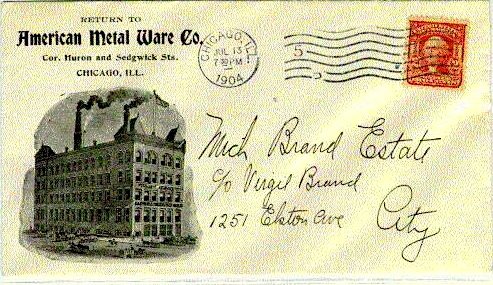 RETURN TO
American Metal Ware Co.
Cor. Huron and Sedgwick Sts.
CHICAGO, ILL.
CHICAGO, ILL.
JUL 13
7-PM
1904
5
5
Mich Brand Estate
c/o Virgil Brand
1251 Elston Ave
City